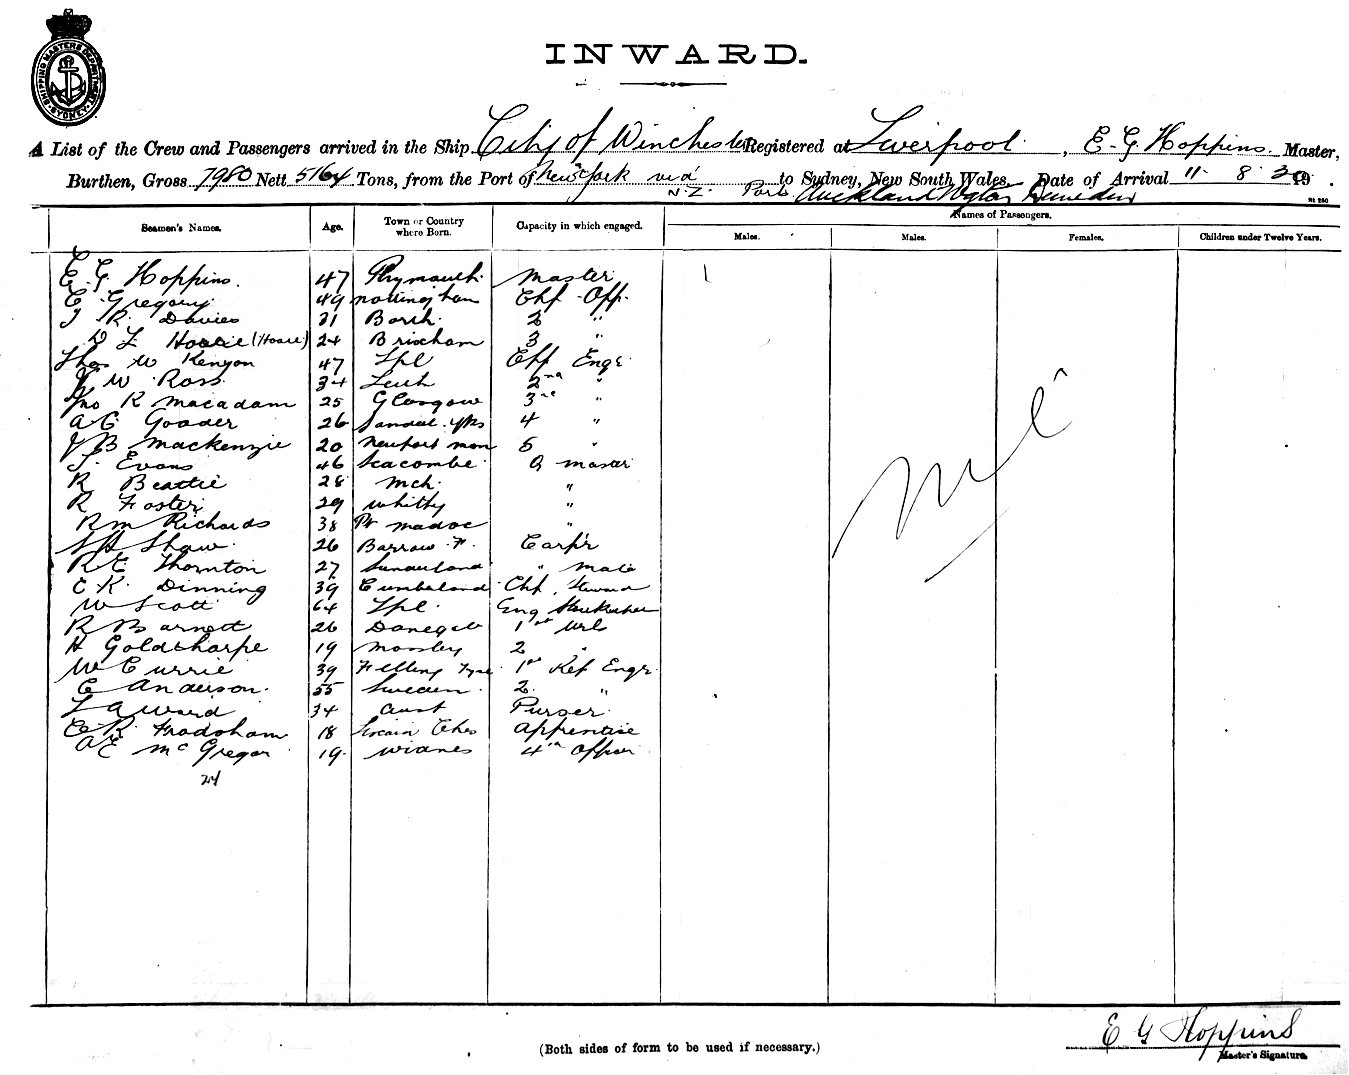 SHIPPING MASTERS DEPARTMENT
SYDNEY
INWARD.
A List of the Crew and Passengers arrived in the Ship City of Winchester Registered at Liverpool, E. G. Hoppins Master,
Burthen, Gross 7980 Nett 5164 Tons, from the Port of New York via to Sydney, New South Wales, Date of Arrival 11. 8. 20 19 .
N.Z. Ports Auckland Wgton Dunedin
Seamen's Names. Age. Town or Country where Born. Capacity in which engaged. Names of Passengers.
Males. Males. Females. Children under Twelve Years.
E. G. Hoppins. 47 Plymouth. Master
C. Gregory 49 Nottingham Chf Off.
J R. Davies 31 Borth. 2 "
D L Hoare (Hoare) 24 Brixham 3 "
Thos W Kenyon 47 Lpl Chf Engr
J W Ross 34 Leith 2nd "
Jno R Macadam 25 Glasgow 3rd "
A C Gooder 26 Sandal. Yks 4 "
J B Mackenzie 20 Newport Mon 5 "
J. Evans 46 Seacombe Q Master
R Beattie 28 Mch. "
R Foster 29 Whitby "
R M Richards 38 Pt Madoc "
Shaw 26 Barrow. F. Carp'r
R C Thornton 27 Sunderland " Mate
C K Dinning 39 Cumberland Chf. Steward
W Scott 64 Lpl. Eng Storekeeper
R Barnett 26 Donegal 1st Wrls
H Goldthorpe 19 Mossley 2 "
W Currie 39 Felling Tyne 1st Ref Engr.
C Anderson. 55 Sweden. 2. "
L A Ward 34 Aust Purser
C R. Frodsham 18 Ches Apprentice
A E McGregor 19. Widnes 4th Officer
24
Nil
(Both sides of form to be used if necessary.)
E G Hoppins
Master's Signature.